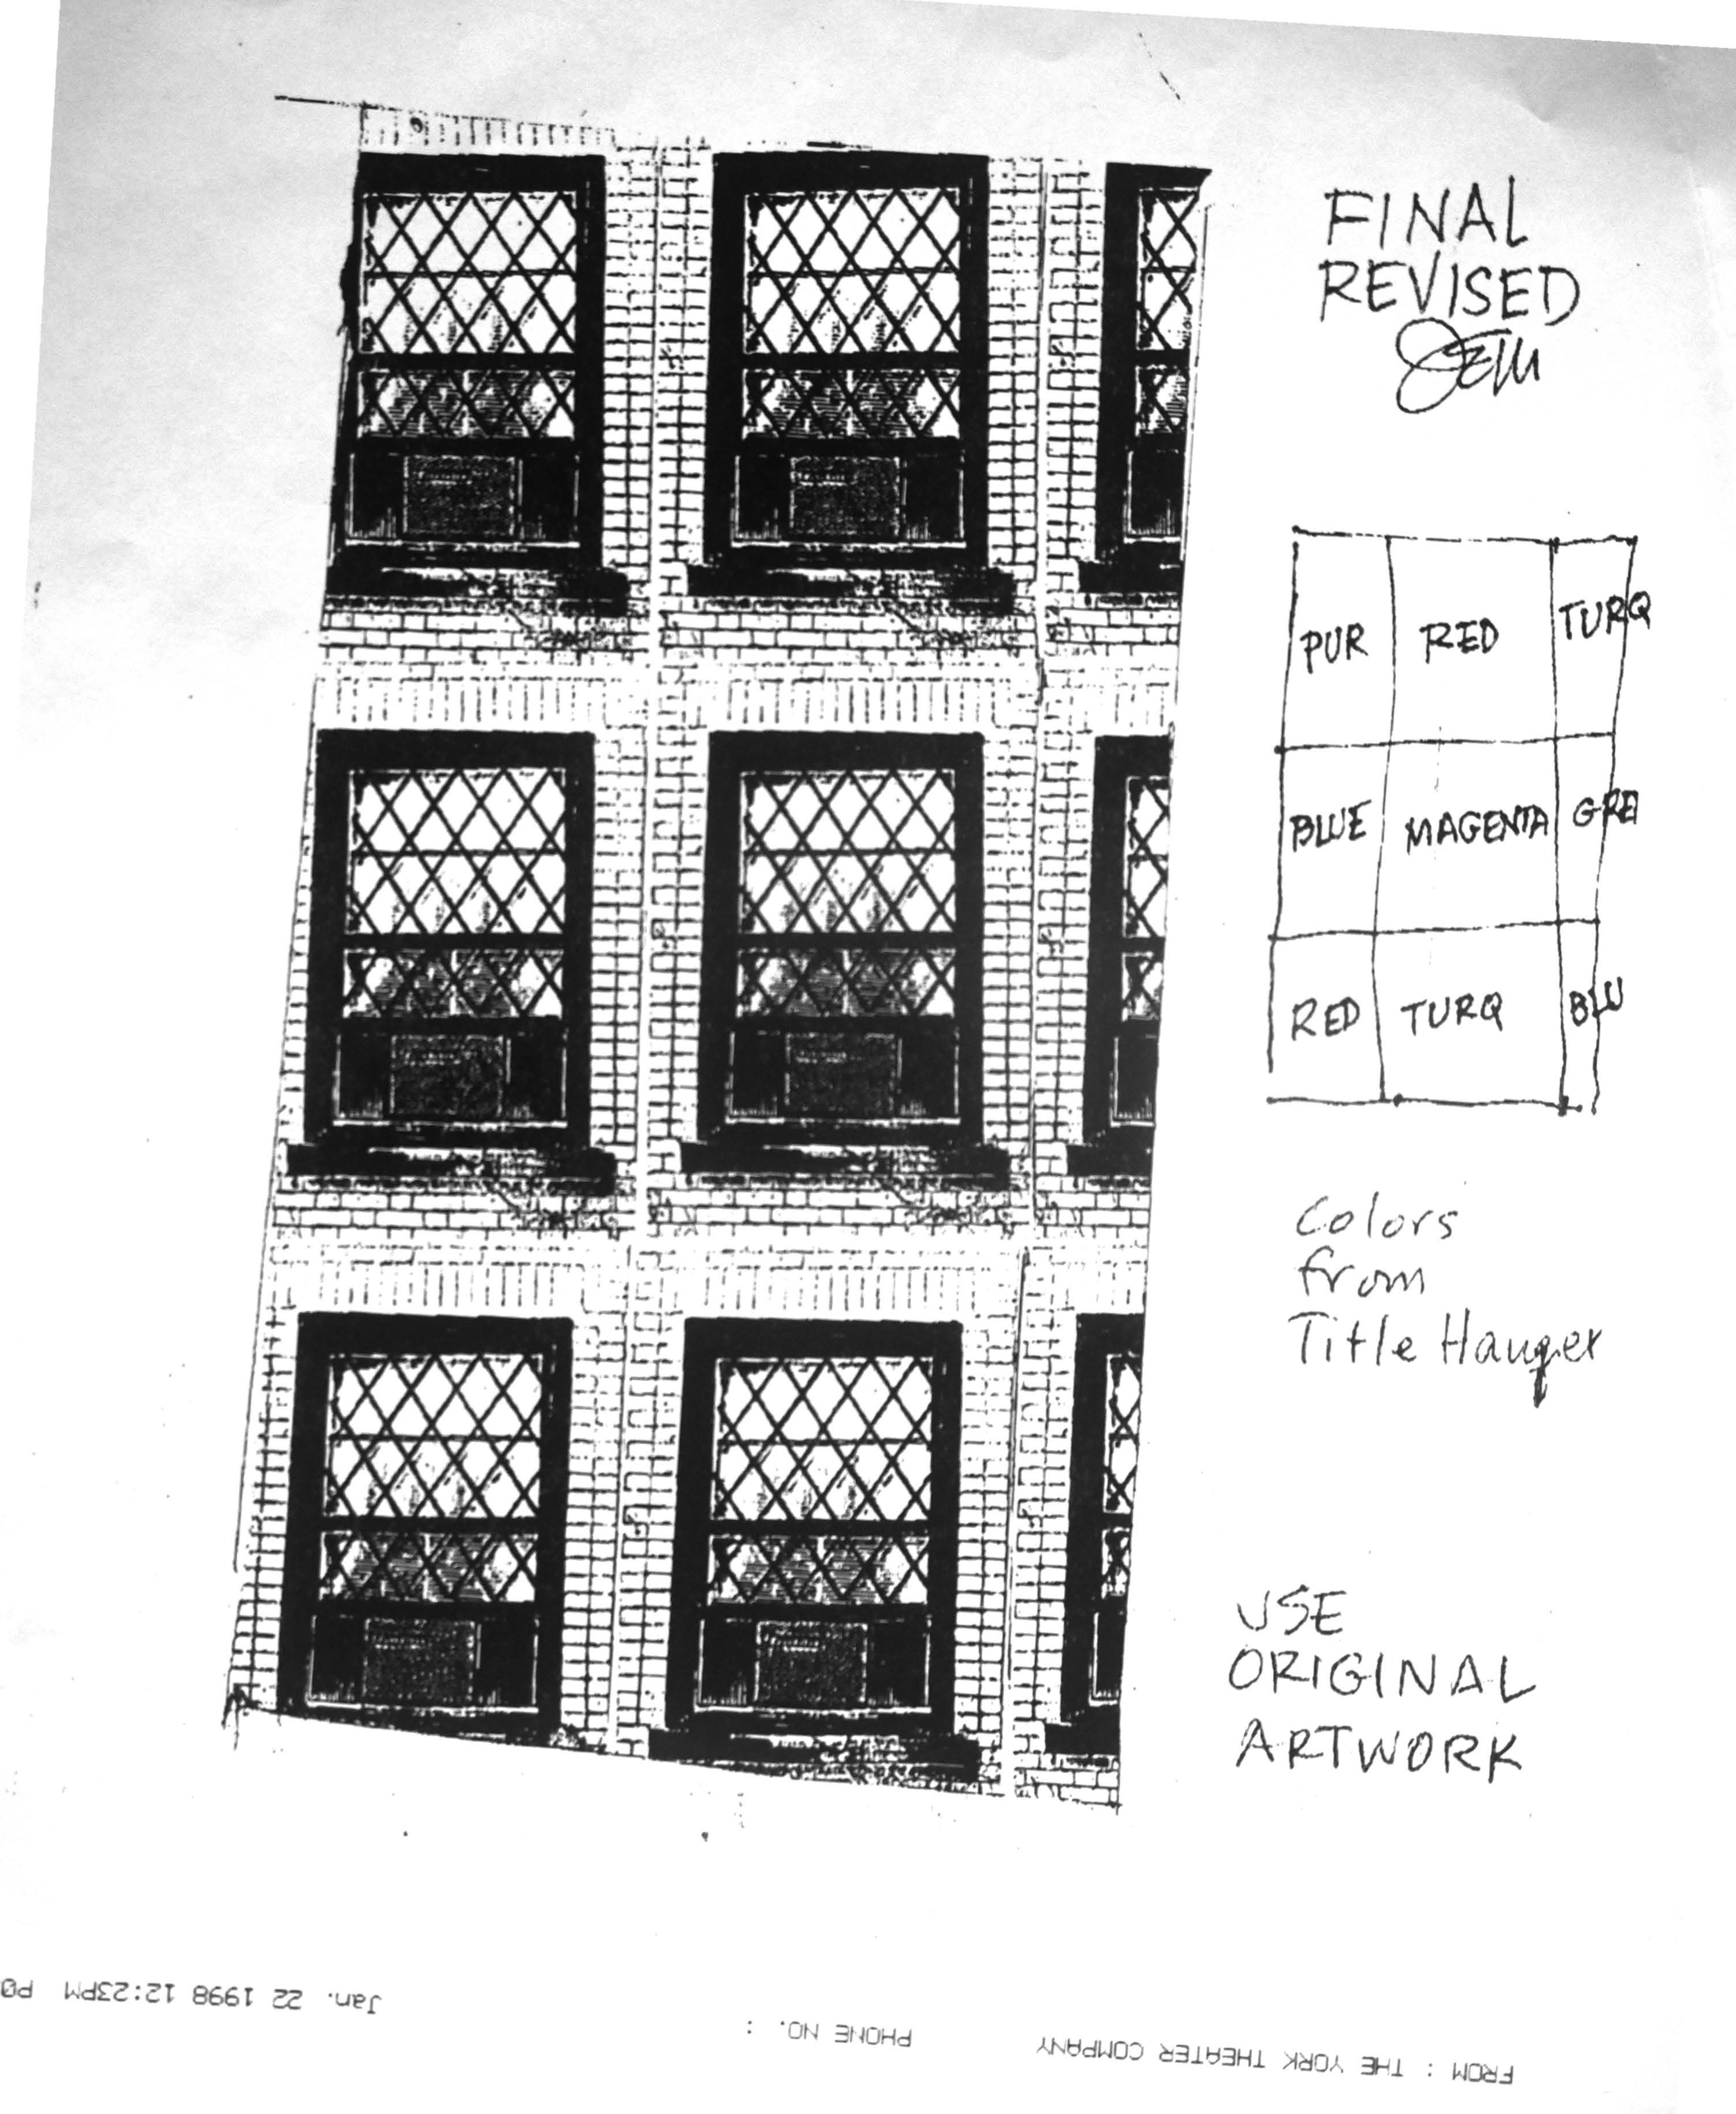 FINAL
REVISED
PUR RED TURQ
BLUE MAGENTA GRE
RED TURQ BLU
Colors
from
Title Hanger
USE
ORIGINAL
ARTWORK
FROM : THE YORK THEATER COMPANY PHONE NO. : Jan. 22 1998 12:23PM P0